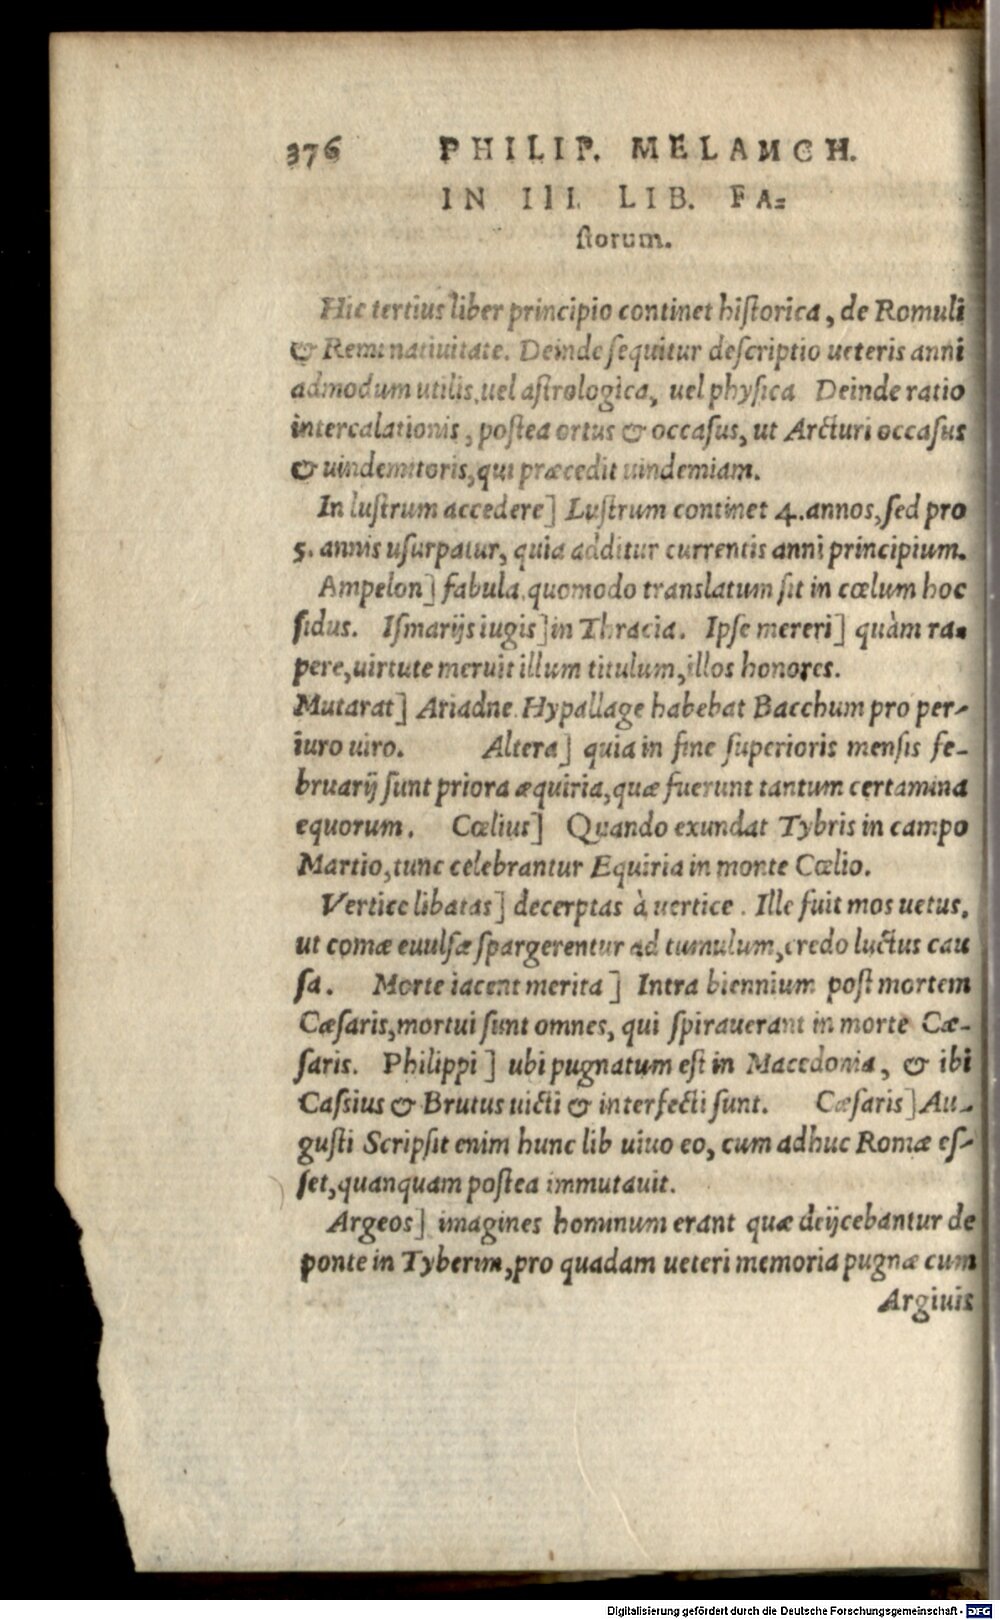 376 PHILIP. MELANCH.
IN III. LIB. FA=
ſtorum.
Hic tertius liber principio continet hiſtorica, de Romuli
& Remi natiuitate. Deinde ſequitur deſcriptio ueteris anni
admodum utilis, uel aſtrologica, uel phyſica Deinde ratio
intercalationis, poſtea ortus & occaſus, ut Arcturi occaſus
& uindemitoris, qui præcedit uindemiam.
In luſtrum accedere] Luſtrum continet 4. annos, ſed pro
5. annis uſurpatur, quia additur currentis anni principium.
Ampelon] fabula, quomodo translatum ſit in cœlum hoc
ſidus. Iſmarijs iugis] in Thracia. Ipſe mereri] quàm ra-
pere, uirtute meruit illum titulum, illos honores.
Mutarat] Ariadne. Hypallage habebat Bacchum pro per-
iuro uiro. Altera] quia in fine ſuperioris menſis fe-
bruarij ſunt priora æquiria, quæ fuerunt tantum certamina
equorum. Cœlius] Quando exundat Tybris in campo
Martio, tunc celebrantur Equiria in monte Cœlio.
Vertice libatas] decerptas à uertice. Ille fuit mos uetus,
ut comæ euulſæ ſpargerentur ad tumulum, credo luctus cau
ſa. Morte iacent merita] Intra biennium poſt mortem
Cæſaris, mortui ſunt omnes, qui ſpirauerant in morte Cæ-
ſaris. Philippi] ubi pugnatum eſt in Macedonia, & ibi
Caſsius & Brutus uicti & interfecti ſunt. Cæſaris] Au-
guſti Scripſit enim hunc lib uiuo eo, cum adhuc Romæ eſ-
ſet, quanquam poſtea immutauit.
Argeos] imagines hominum erant quæ deijcebantur de
ponte in Tyberim, pro quadam ueteri memoria pugnæ cum
Argiuis
Digitalisierung gefördert durch die Deutsche Forschungsgemeinschaft - DFG